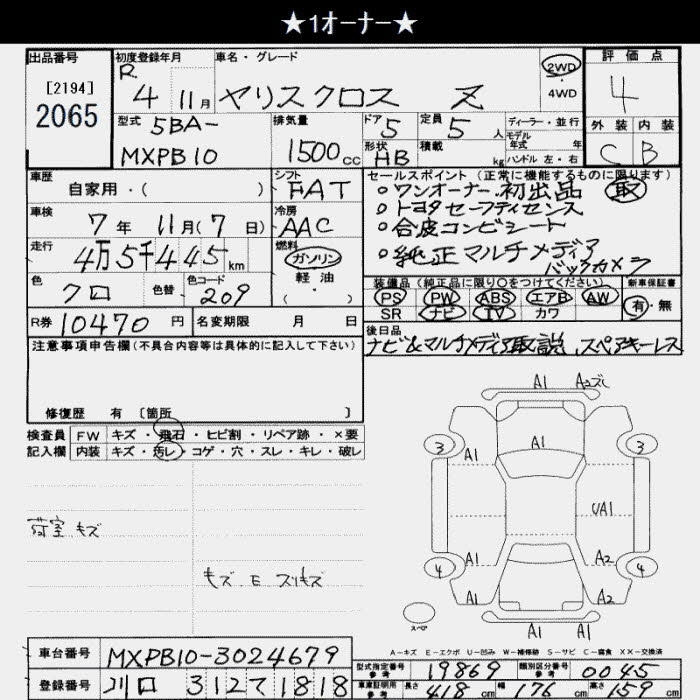 ★1オーナー★
出品番号
[2194]
2065
初度登録年月
R.
4 11月
車名・グレード
ヤリスクロス Z
2WD
・
4WD
評価点
4
外装 内装
C B
型式
5BA-
MXPB10
排気量
1500cc
ドア
5
定員
5人
形状
HB
積載
kg
ディーラー・並行
モデル
年式 年
ハンドル 左・右
車歴
自家用・( )
シフト
FAT
車検
7年 11月(7日)
冷房
AAC
走行
4万5千445km
燃料
ガソリン
軽油
・( )
色
クロ
色替
色コード
209
R券 10470円
名変期限 月 日
セールスポイント(正常に機能するものに限ります)
○ワンオーナー.初出品 取
○トヨタセーフティセンス
○合皮コンビシート
○純正マルチメディア
バックカメラ
装備品(純正品に限り○をつけてください) 新車保証書
PS PW ABS エアB AW
SR ナビ TV カワ
有・無
後日品
ナビ&マルチメディア取説.スペアキーレス
注意事項申告欄(不具合内容等は具体的に記入して下さい)
修復歴 有 [箇所 ]
検査員 FW キズ・飛石・ヒビ割・リペア跡・×要
記入欄 内装 キズ・汚レ・コゲ・穴・スレ・キレ・破レ
荷室 キズ
キズ E スリキズ
A1 A2ズレ
3 A1 A1 3
UA1
4 A1 A2 4
A1 A2
スペア
A1 A1
A-キズ E-エクボ U-凹み W-補修跡 S-サビ C-腐食 XX-交換済
車台番号 MXPB10-3024679
登録番号 川口 312 て 1818
型式指定番号
参考
19869
類別区分番号
参考
0045
車庫証明用
参考
長さ 418cm 幅 176cm 高さ 159cm